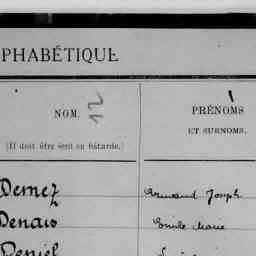 PHABÉTIQUE
NOM. 12
PRÉNOMS
ET SURNOMS.
(Il doit être écrit en bâtarde.)
Demez Armand Joseph
Denais Emile Marie
Deniel